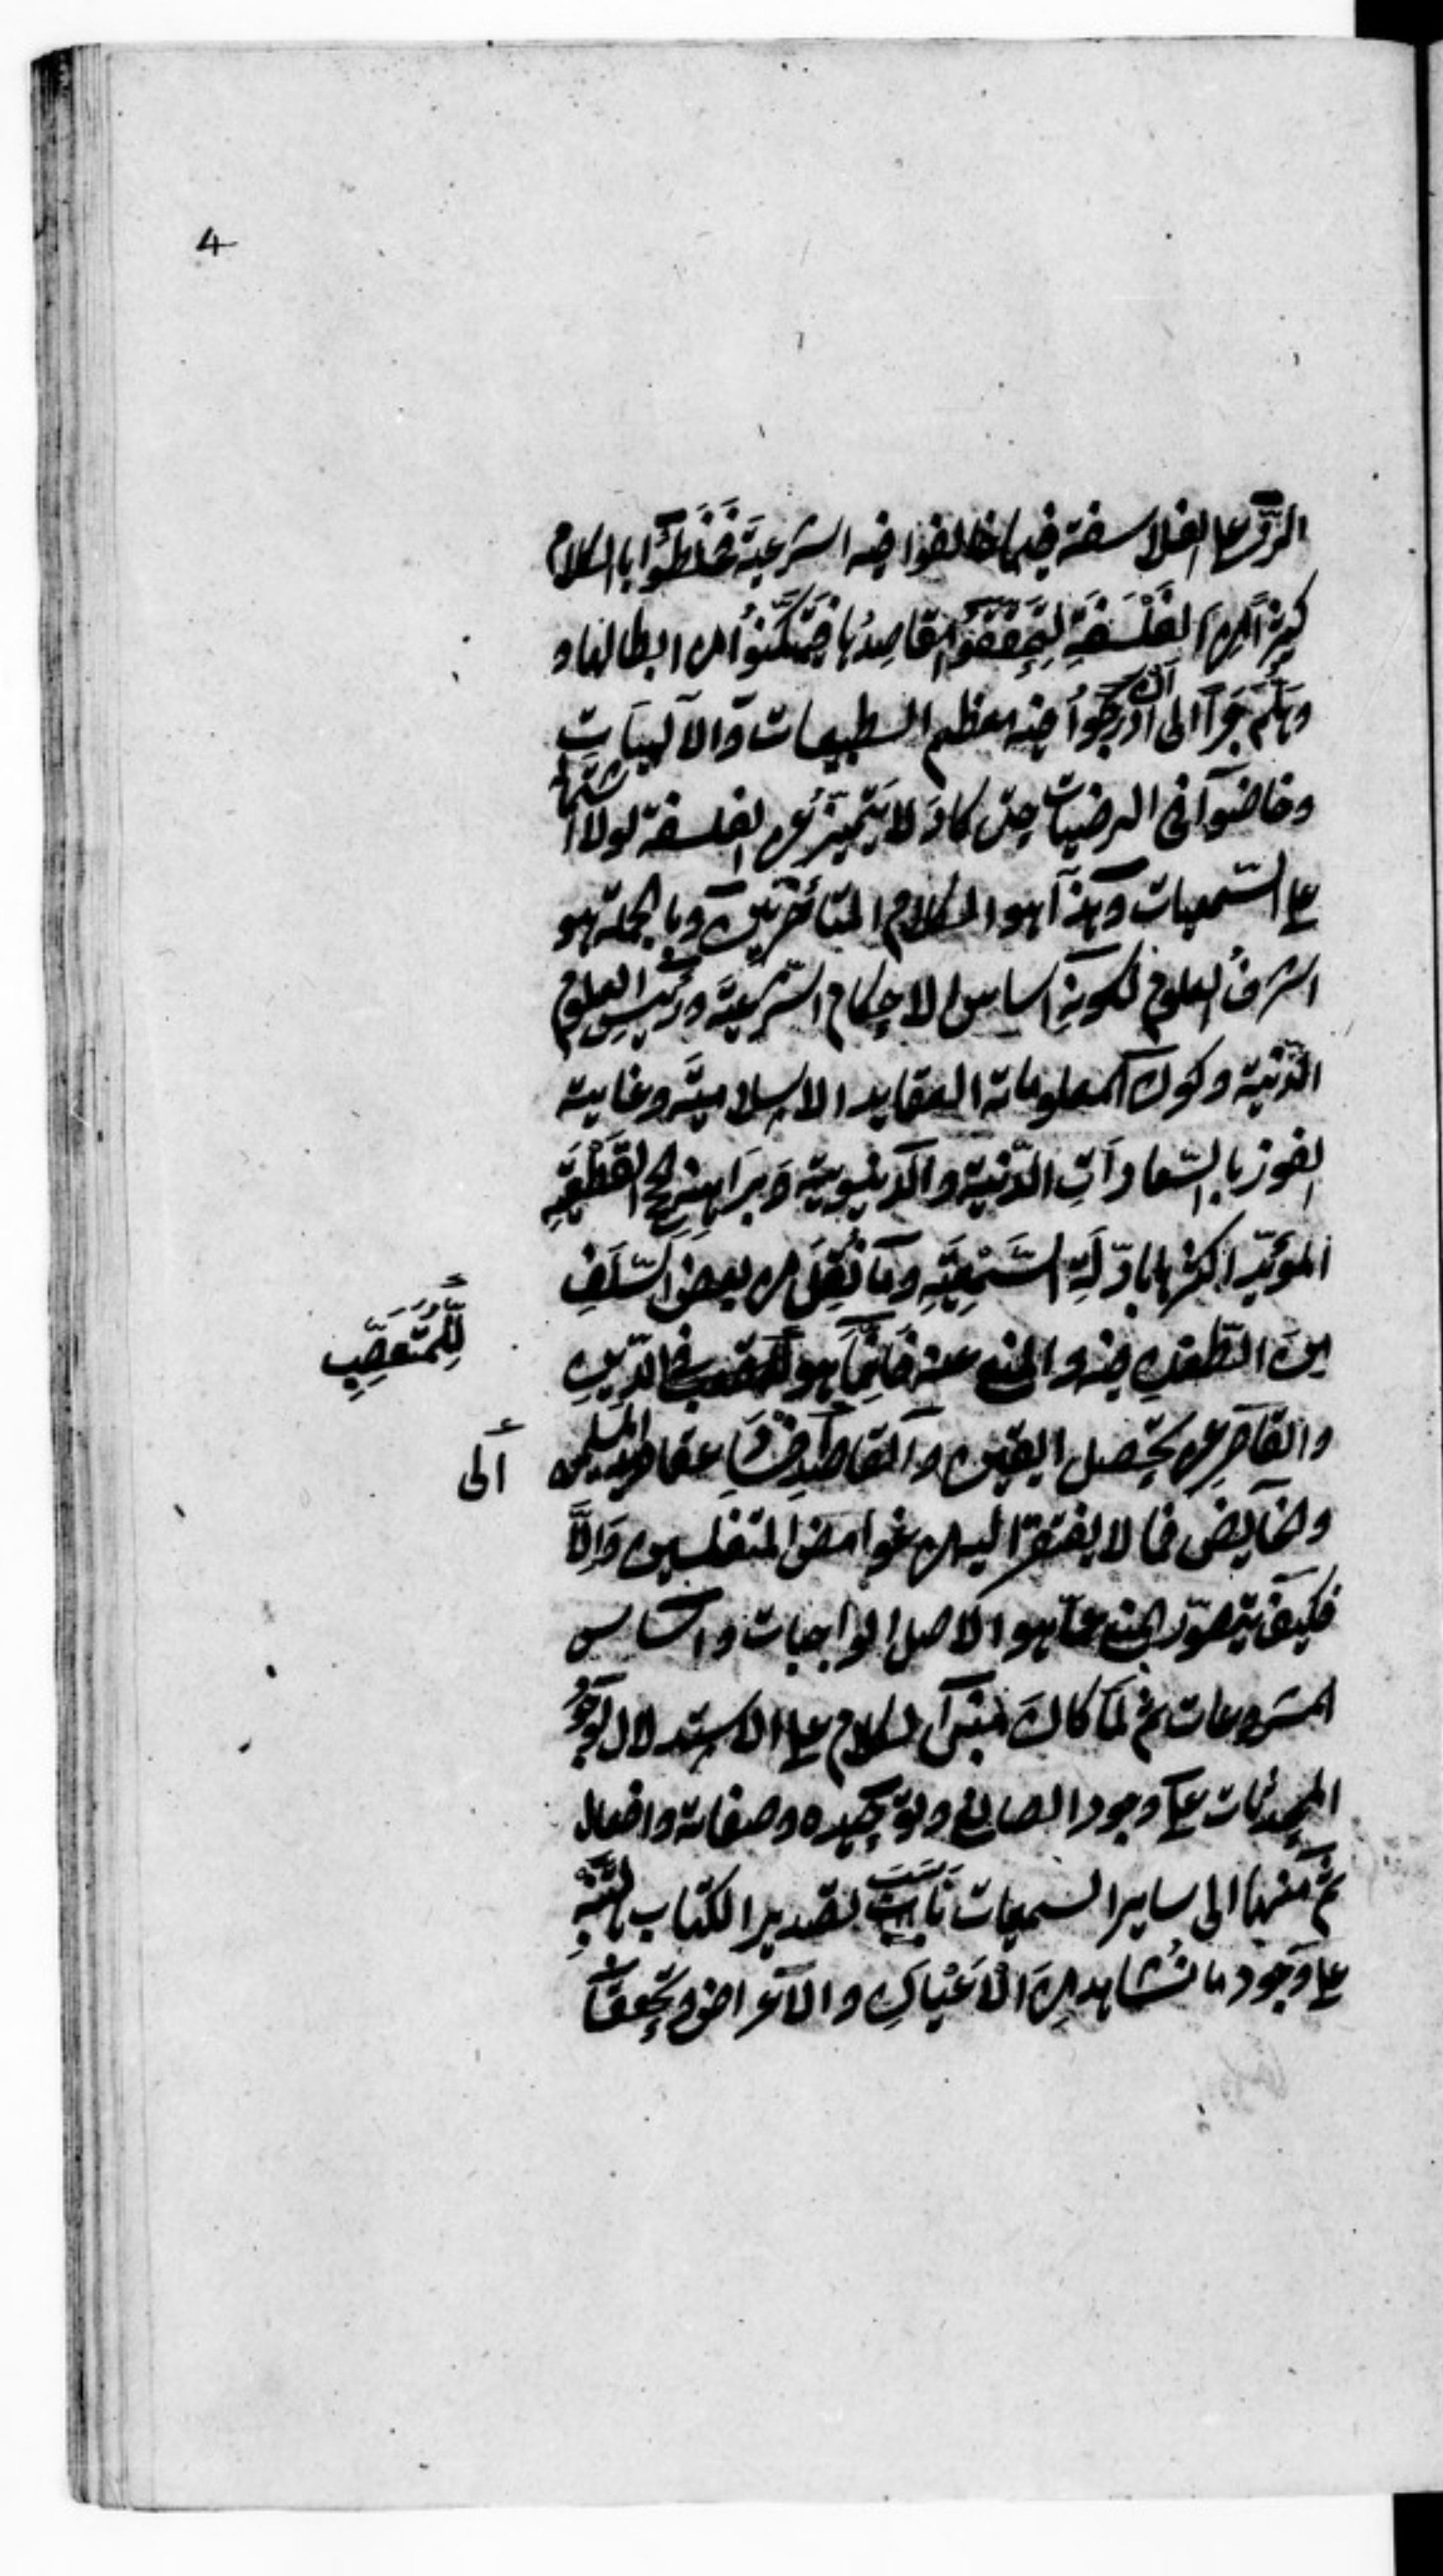 4
الردّ على الفلاسفة فيما خالفوا فيه الشرعيّة فَخَلَطُوْا باالكلام
كثيرًا مِن الفَلْسَفَةِ لِيَتَحَقَّقُوْا مَقاصِدُها فَيَتَمَكَّنُوْا من ابطالها و
وهَلُمَّ جَرّا الى ان ادرجُوا فيه معظم الطبيعات وَالالهيَاتِ
وخاضوا فى الرضيات حتى كادَ لا يَتَميّزُ عن الفلسفة لولا اشتماله
على السّمعيات وَهذا هو الكلام المتأخّرِيْنَ وبا لجملة هو
اشرفُ العلوم لكونهِ اساس الاحكام الشّرعيّة ورئيسِ العلوم
الدّنيّة وكون معلوماته العقايد الاسلاميّة وغايته
الفوز بالسّعاداتِ الدّنيّة والدّينويّة وَبرَاهينهِ الحج القَطْعِيَّهِ
المؤيّد اكثرها بادّلَةِ السَّمْعِيَّهِ ومَا نُقِلَ من بعض السّلَفِ
مِنَ الطّعن فيه والمنع عنه فَاِنّما هو للمتعصب فى الدّينِ
لِلْمُتَعصِّبِ
والقاصِر عن تحصيل اليقين والقاصِدِ عقايد المسلمين
الى
والخايض فيما لا يفتقر اليه من غوامض المتفلسفين وَاِلاَّ
فكيفَ يتصوّر المنع عمّا هو الاصل الواجبات واساس
المشروعات ثم لمّا كانَ مبنى الكلام على الاستدلال بوجود
المحدثات على وجود الصانع وتوحيده وصفاته وافعاله
ثمّ منها الى ساير السمعيات نَاسَبَ تصدير الكتاب بالتّنبِيهِ
على وَجود ما نُشاهد مِنَ الاَعْيانِ والاَعراض وتَحقّقِ